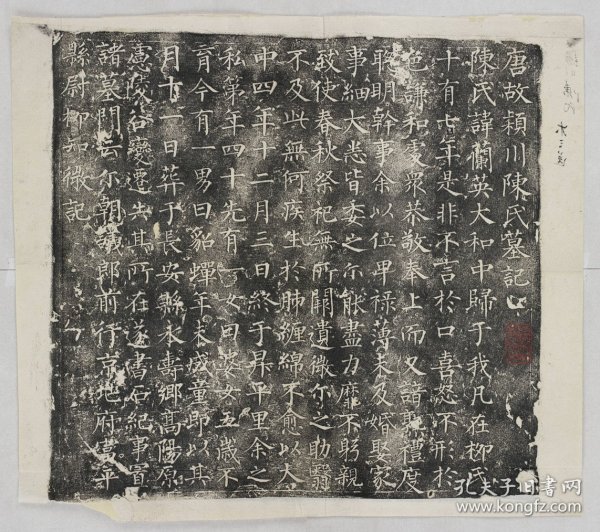 唐故潁川陳氏墓記
陳氏諱蘭英大和中歸于我凡在柳氏
十有七年是非不言於口喜怒不形於
色謙和處眾恭敬奉上而又諳熟禮度
聰明幹事余以位卑祿薄未及婚娶家
事細大悉皆委之尔能盡力靡不躬親
致使春秋祭祀無所闕遺微尔之助翳
不及此無何疾生於肺纏綿不愈以大
中四年十二月三日終于昇平里余之
私第年四十先有一女曰婆女五歲不
育今有一男曰貂蟬年未成童即以其
月十一日葬于長安縣永壽鄉高陽原
慮陵谷變遷失其所在遂書石紀事置
諸墓門云尔朝議郎前行京地府富平
縣尉柳知微記
孔夫子旧书网
www.kongfz.com